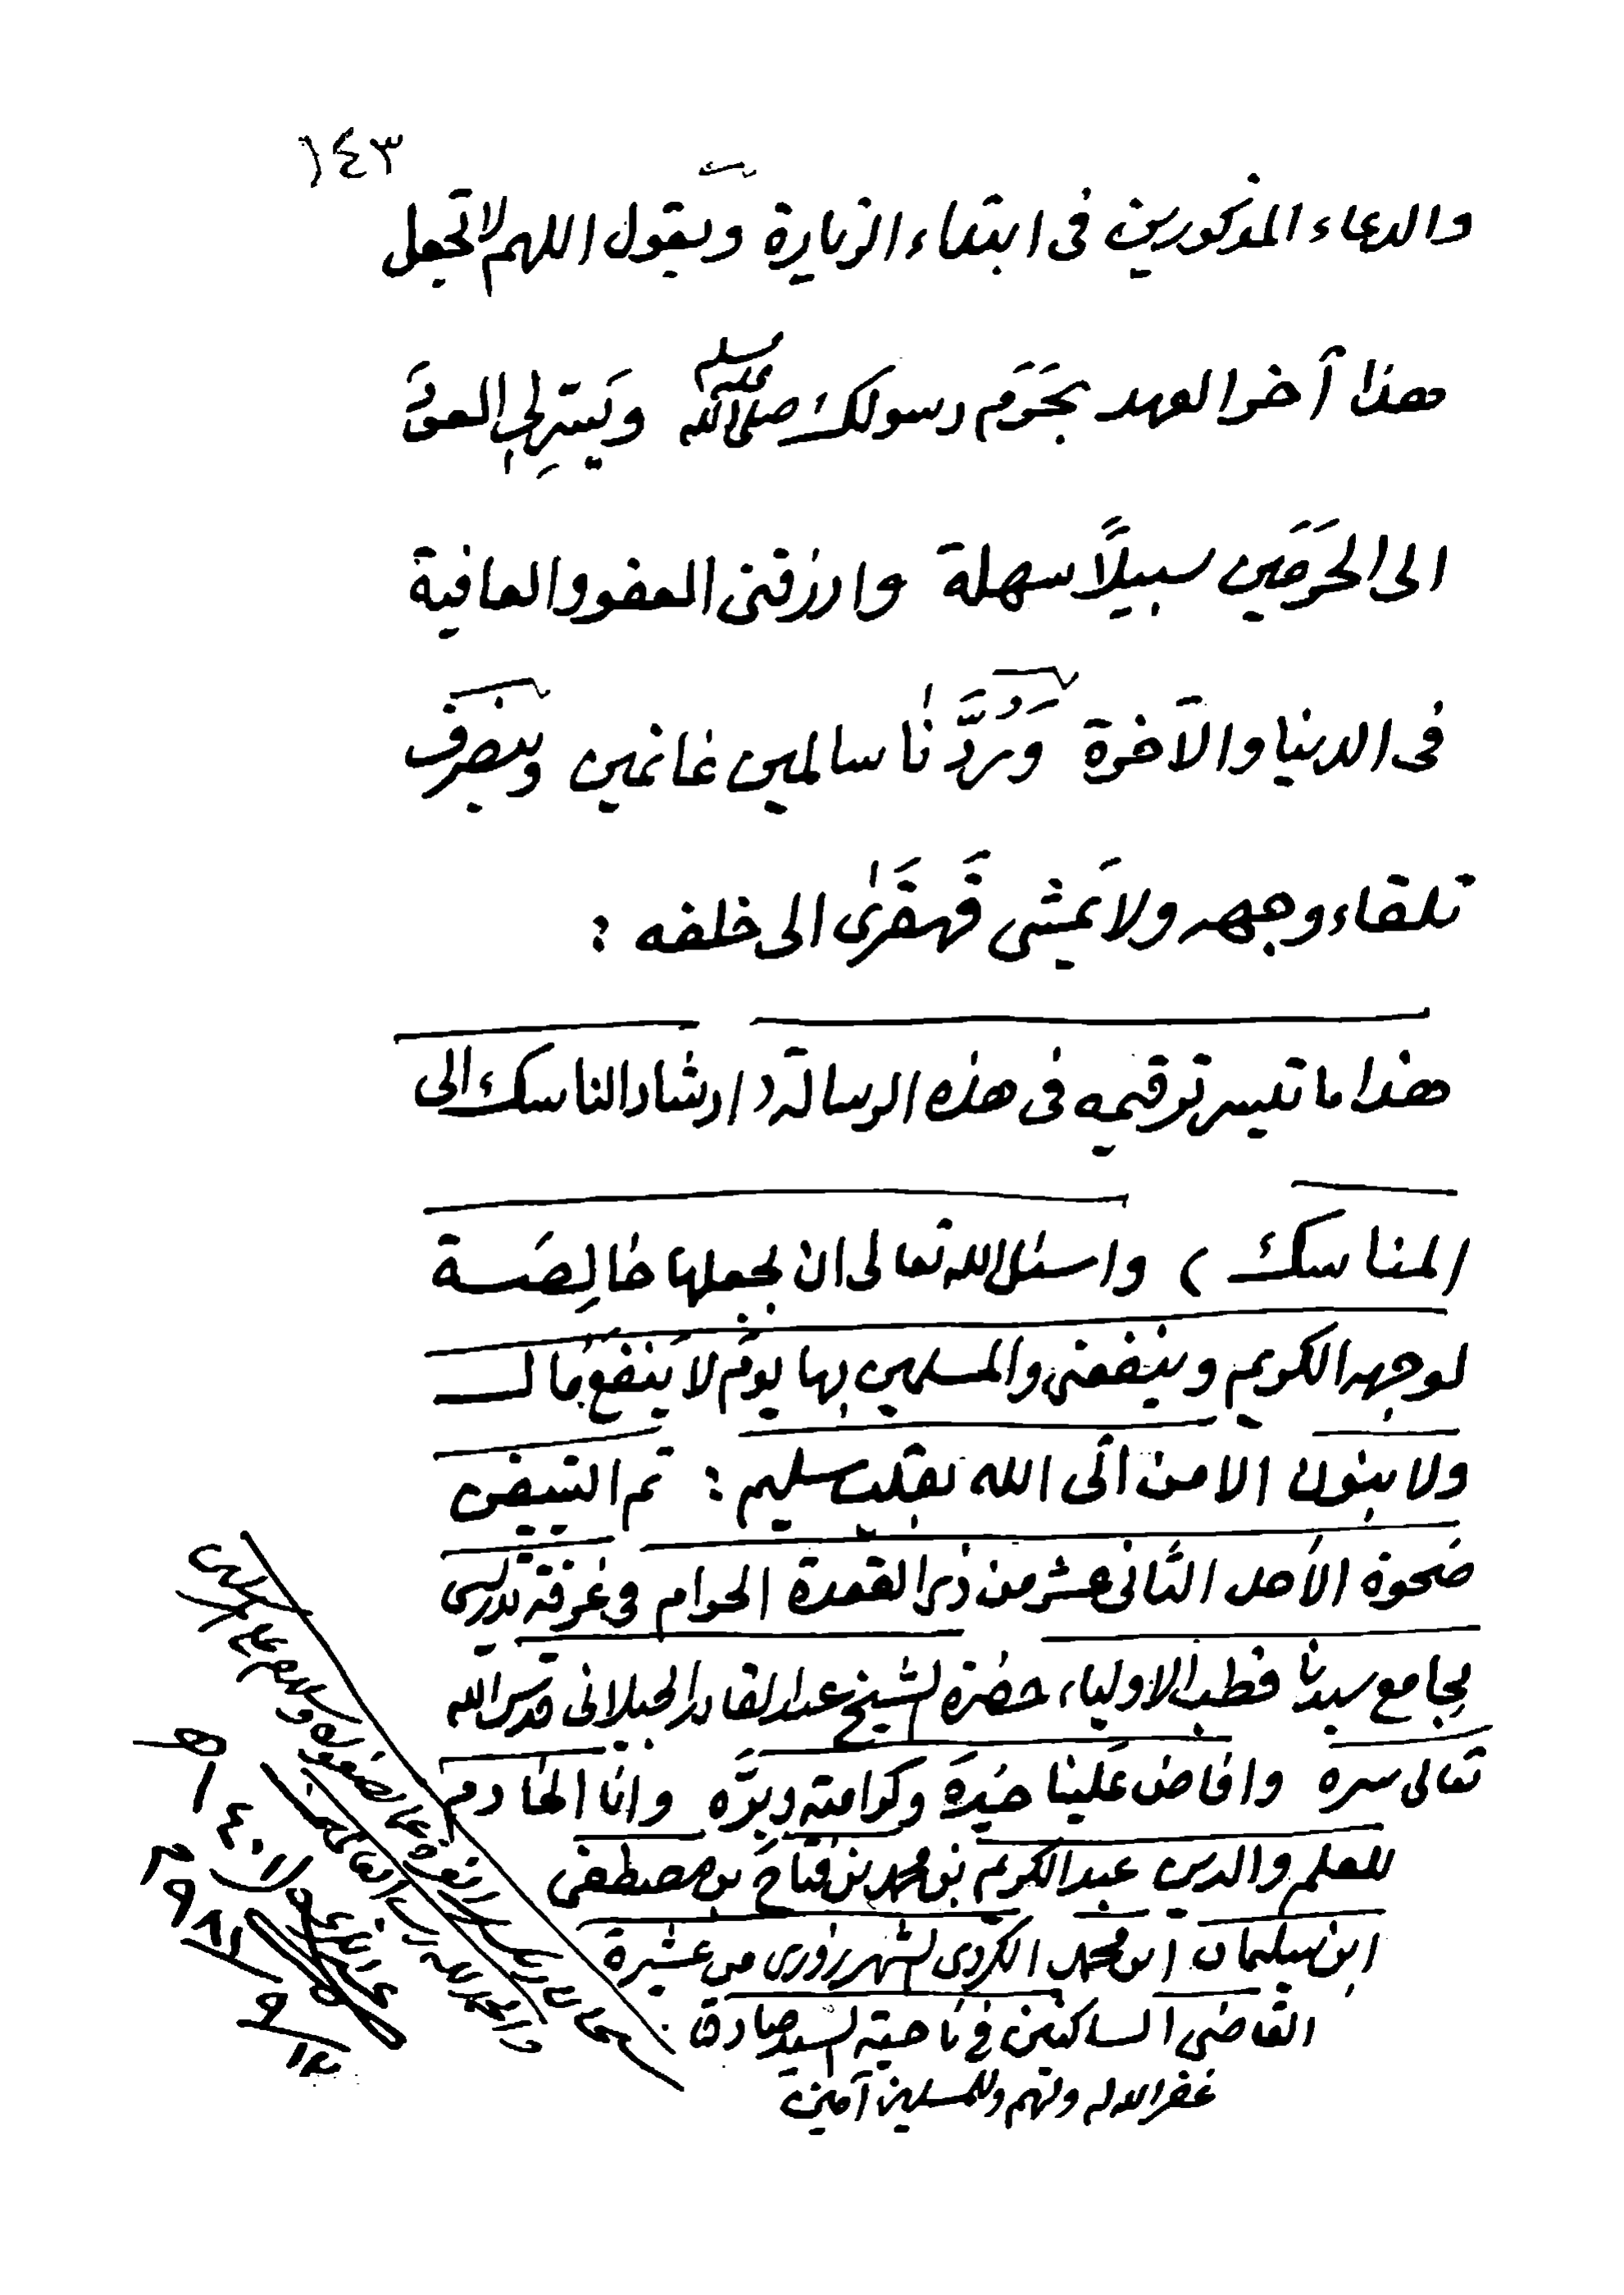 ١٤٣
والدعاء المذكورين فى ابتداء الزيارة ويقول اللهم لا تجعل
هذا آخر العهد بحَرَم رسولك صلى الله عليه وسلم ويَسِّر لِى العودَ
الى الحَرَمَين سبيلًا سهلة وارزقنى العفو والعافية
فى الدنيا والآخرة وَرُدَّنا سالمين غانمين وينصرف
تلقاء وجهه ولا يَمشى قَهقَرٰى الى خلفه :
هذا ما تيسر ترقيمه فى هذه الرسالة ( ارشاد الناسك الى
المناسك ) واسئل الله تعالى ان يجعلها خالِصَة
لوجهه الكريم وينفعنى والمسلمين بها يومَ لا يَنفَعُ مال
ولا بنون الا من أتى الله بقلب سليم : تم التبييض
ضحوة الأحد الثانى عشر من ذى القعدة الحرام فى غرفة تدريسى
بجامع سيدنا قطب الاولياء حضرة الشيخ عبد القادر الجيلانى قدس الله
تعالى سره وافاض علينا خيرَه وكرامته وبرَّه وانا الخادم
للعلم والدين عبد الكريم بن محمد بن فتاح بن مصطفى
ابن سليمان ابن محمد الكردى الشهرزورى من عشيرة
القاضى الساكنين فى ناحية السيد صادق
غفر الله له ولهم وللمسلمين آمين
سبحان ربك رب العزة عما يصفون وسلام على المرسلين
والحمد لله رب العالمين
١٤٠١ هـ
١٩٨١ م
١٢/٩